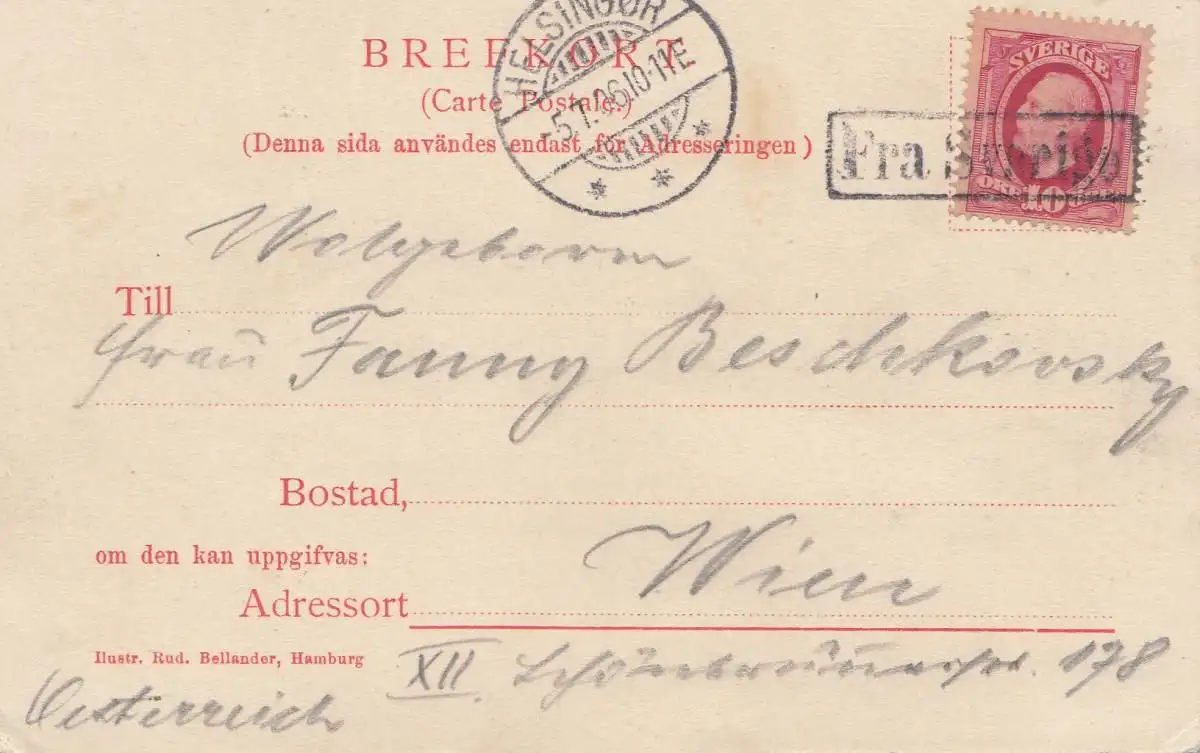 HELSINGØR
5.7.06 10-11E
BREFKORT.
(Carte Postale.)
(Denna sida användes endast för Adresseringen)
SVERIGE
10
Fra Sverige
Wolgeborn
Till
Frau Fanny Beschkovsky
Bostad,
om den kan uppgifvas:
Wien
Adressort
Illustr. Rud. Bellander, Hamburg
XII. Schönbrunnerstr. 178
Oesterreich